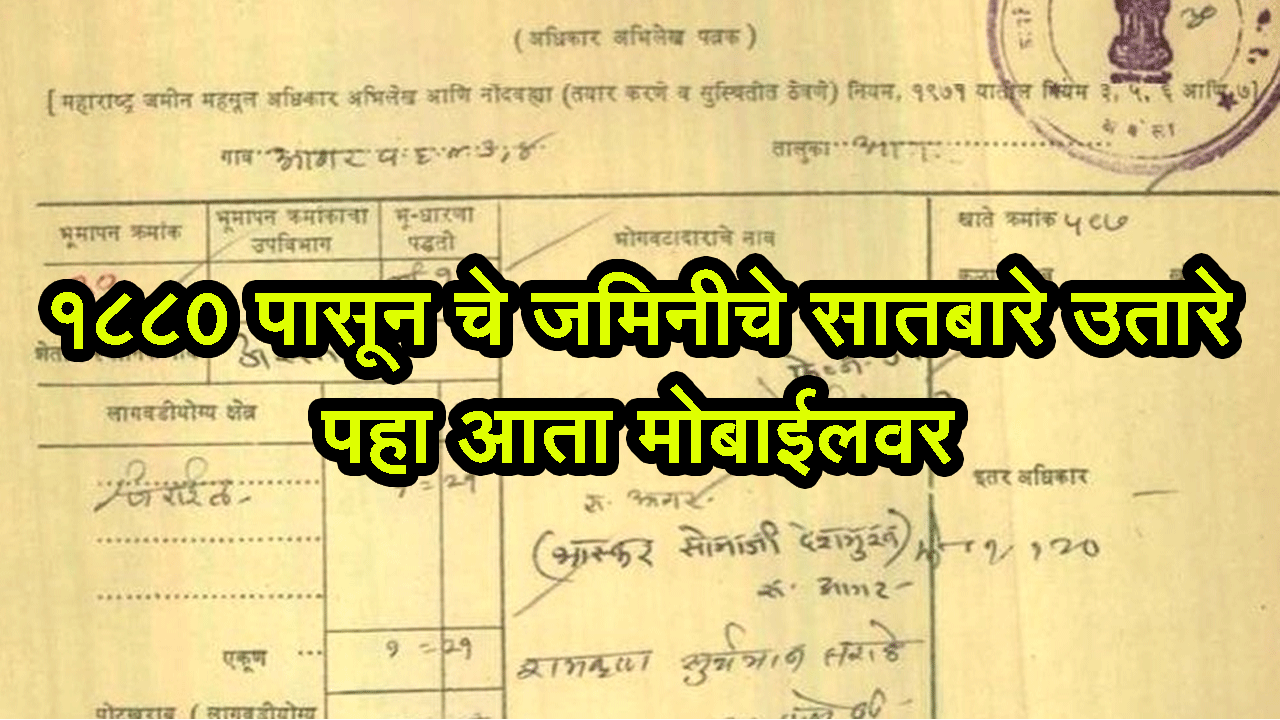 ( अधिकार अभिलेख पत्रक )
[ महाराष्ट्र जमीन महसूल अधिकार अभिलेख आणि नोंदवह्या (तयार करणे व सुस्थितीत ठेवणे) नियम, १९७१ यातील नियम ३, ५, ६ आणि ७]
गाव आगर तालुका
भूमापन क्रमांक भूमापन क्रमांकाचा उपविभाग भू-धारणा पद्धती भोगवटादाराचे नाव खाते क्रमांक ५८७
१८८० पासून चे जमिनीचे सातबारे उतारे
पहा आता मोबाईलवर
लागवडीयोग्य क्षेत्र
इतर अधिकार
जिराईत १ = २१
रु. आगर
(भास्कर सोनाजी देशमुख)
रु. आगर
एकूण ... १ = २१
रामकृष्ण सुर्यभान
पोटखराब ( लागवडीयोग्य